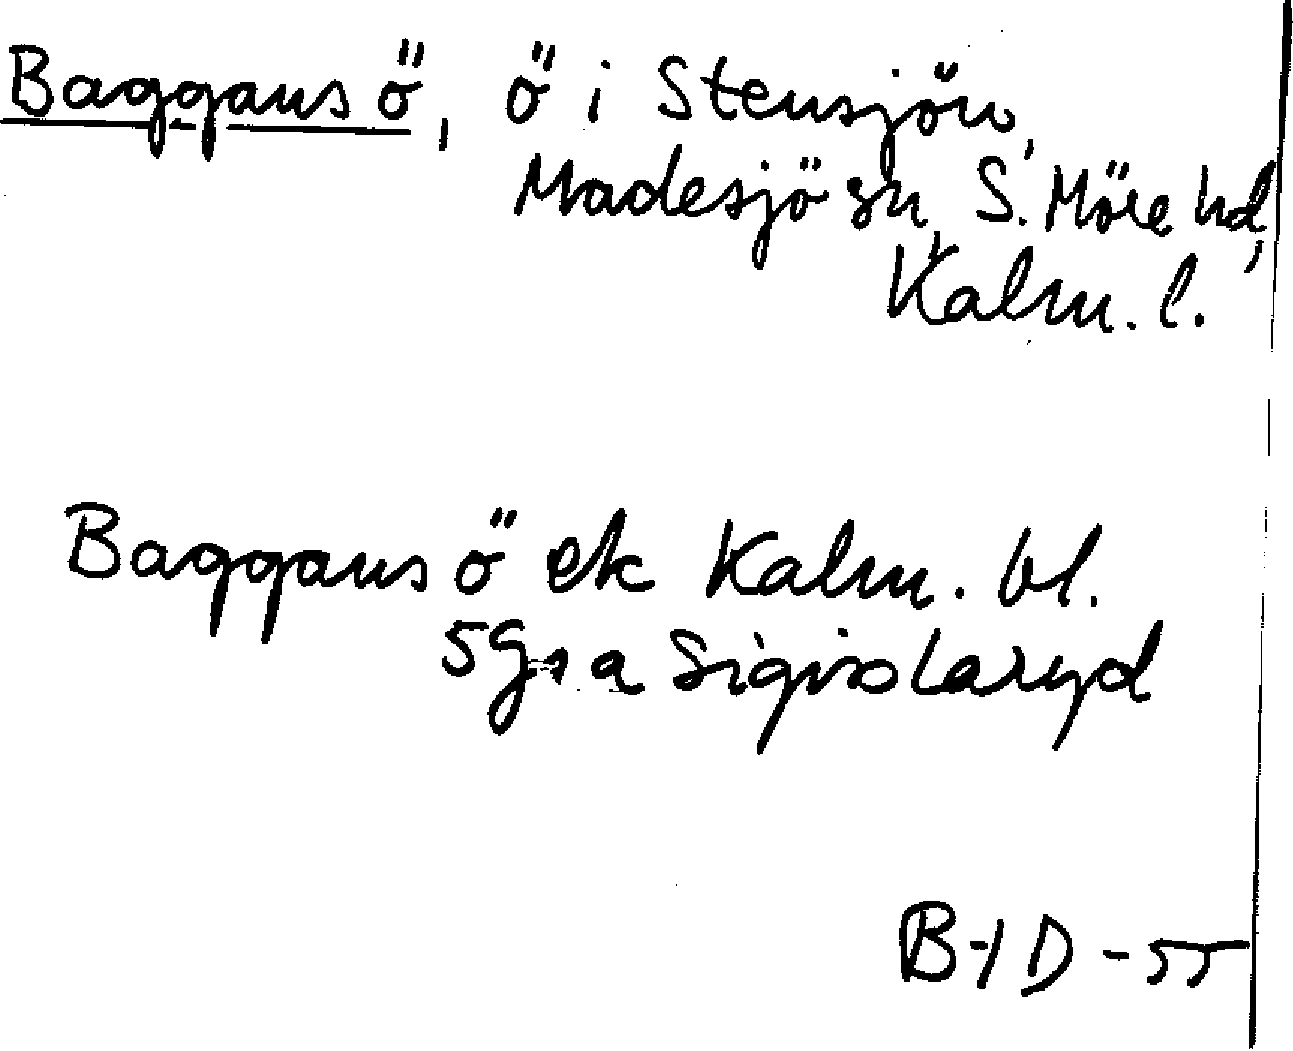 Baggans ö, ö i Stensjön,
Madesjö sn, S. Möre hd,
Kalm. l.
Baggans ö ek Kalm. bl.
5 G, a Sigislaryd
B-ID-55